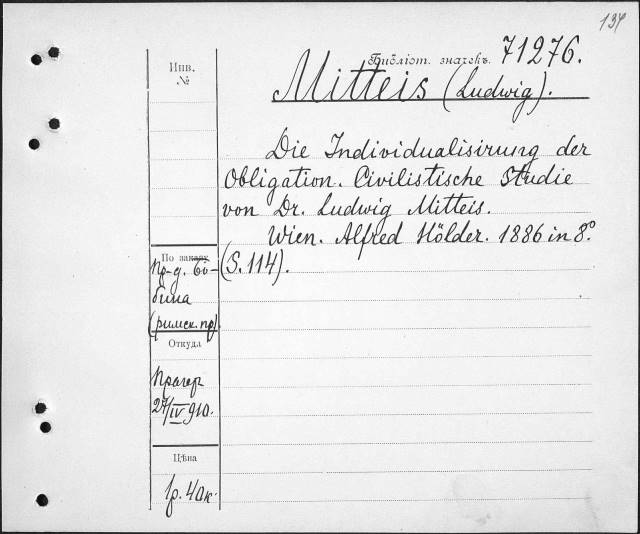 134
Инв.
№
Библіот. значекъ. 71276.
Mitteis (Ludwig).
Die Individualisirung der
Obligation. Civilistische Studie
von Dr. Ludwig Mitteis.
Wien. Alfred Hölder. 1886 in 8º.
(S. 114).
По заказу
пр-д.
бина
(римск. пр).
Откуда
Прагер
27/IV 910.
Цѣна
1р. 40к.